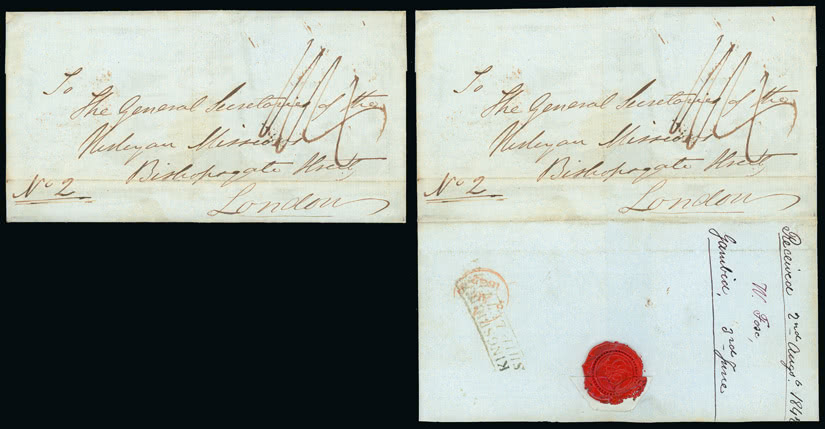 To
The General Secretaries of the
Wesleyan Missions
Bishopsgate Street
London
No 2
To
The General Secretaries of the
Wesleyan Missions
Bishopsgate Street
No 2
London
Received 2nd Augst 184
W. Fox,
Gambia, 3rd June
SHIP LETTER